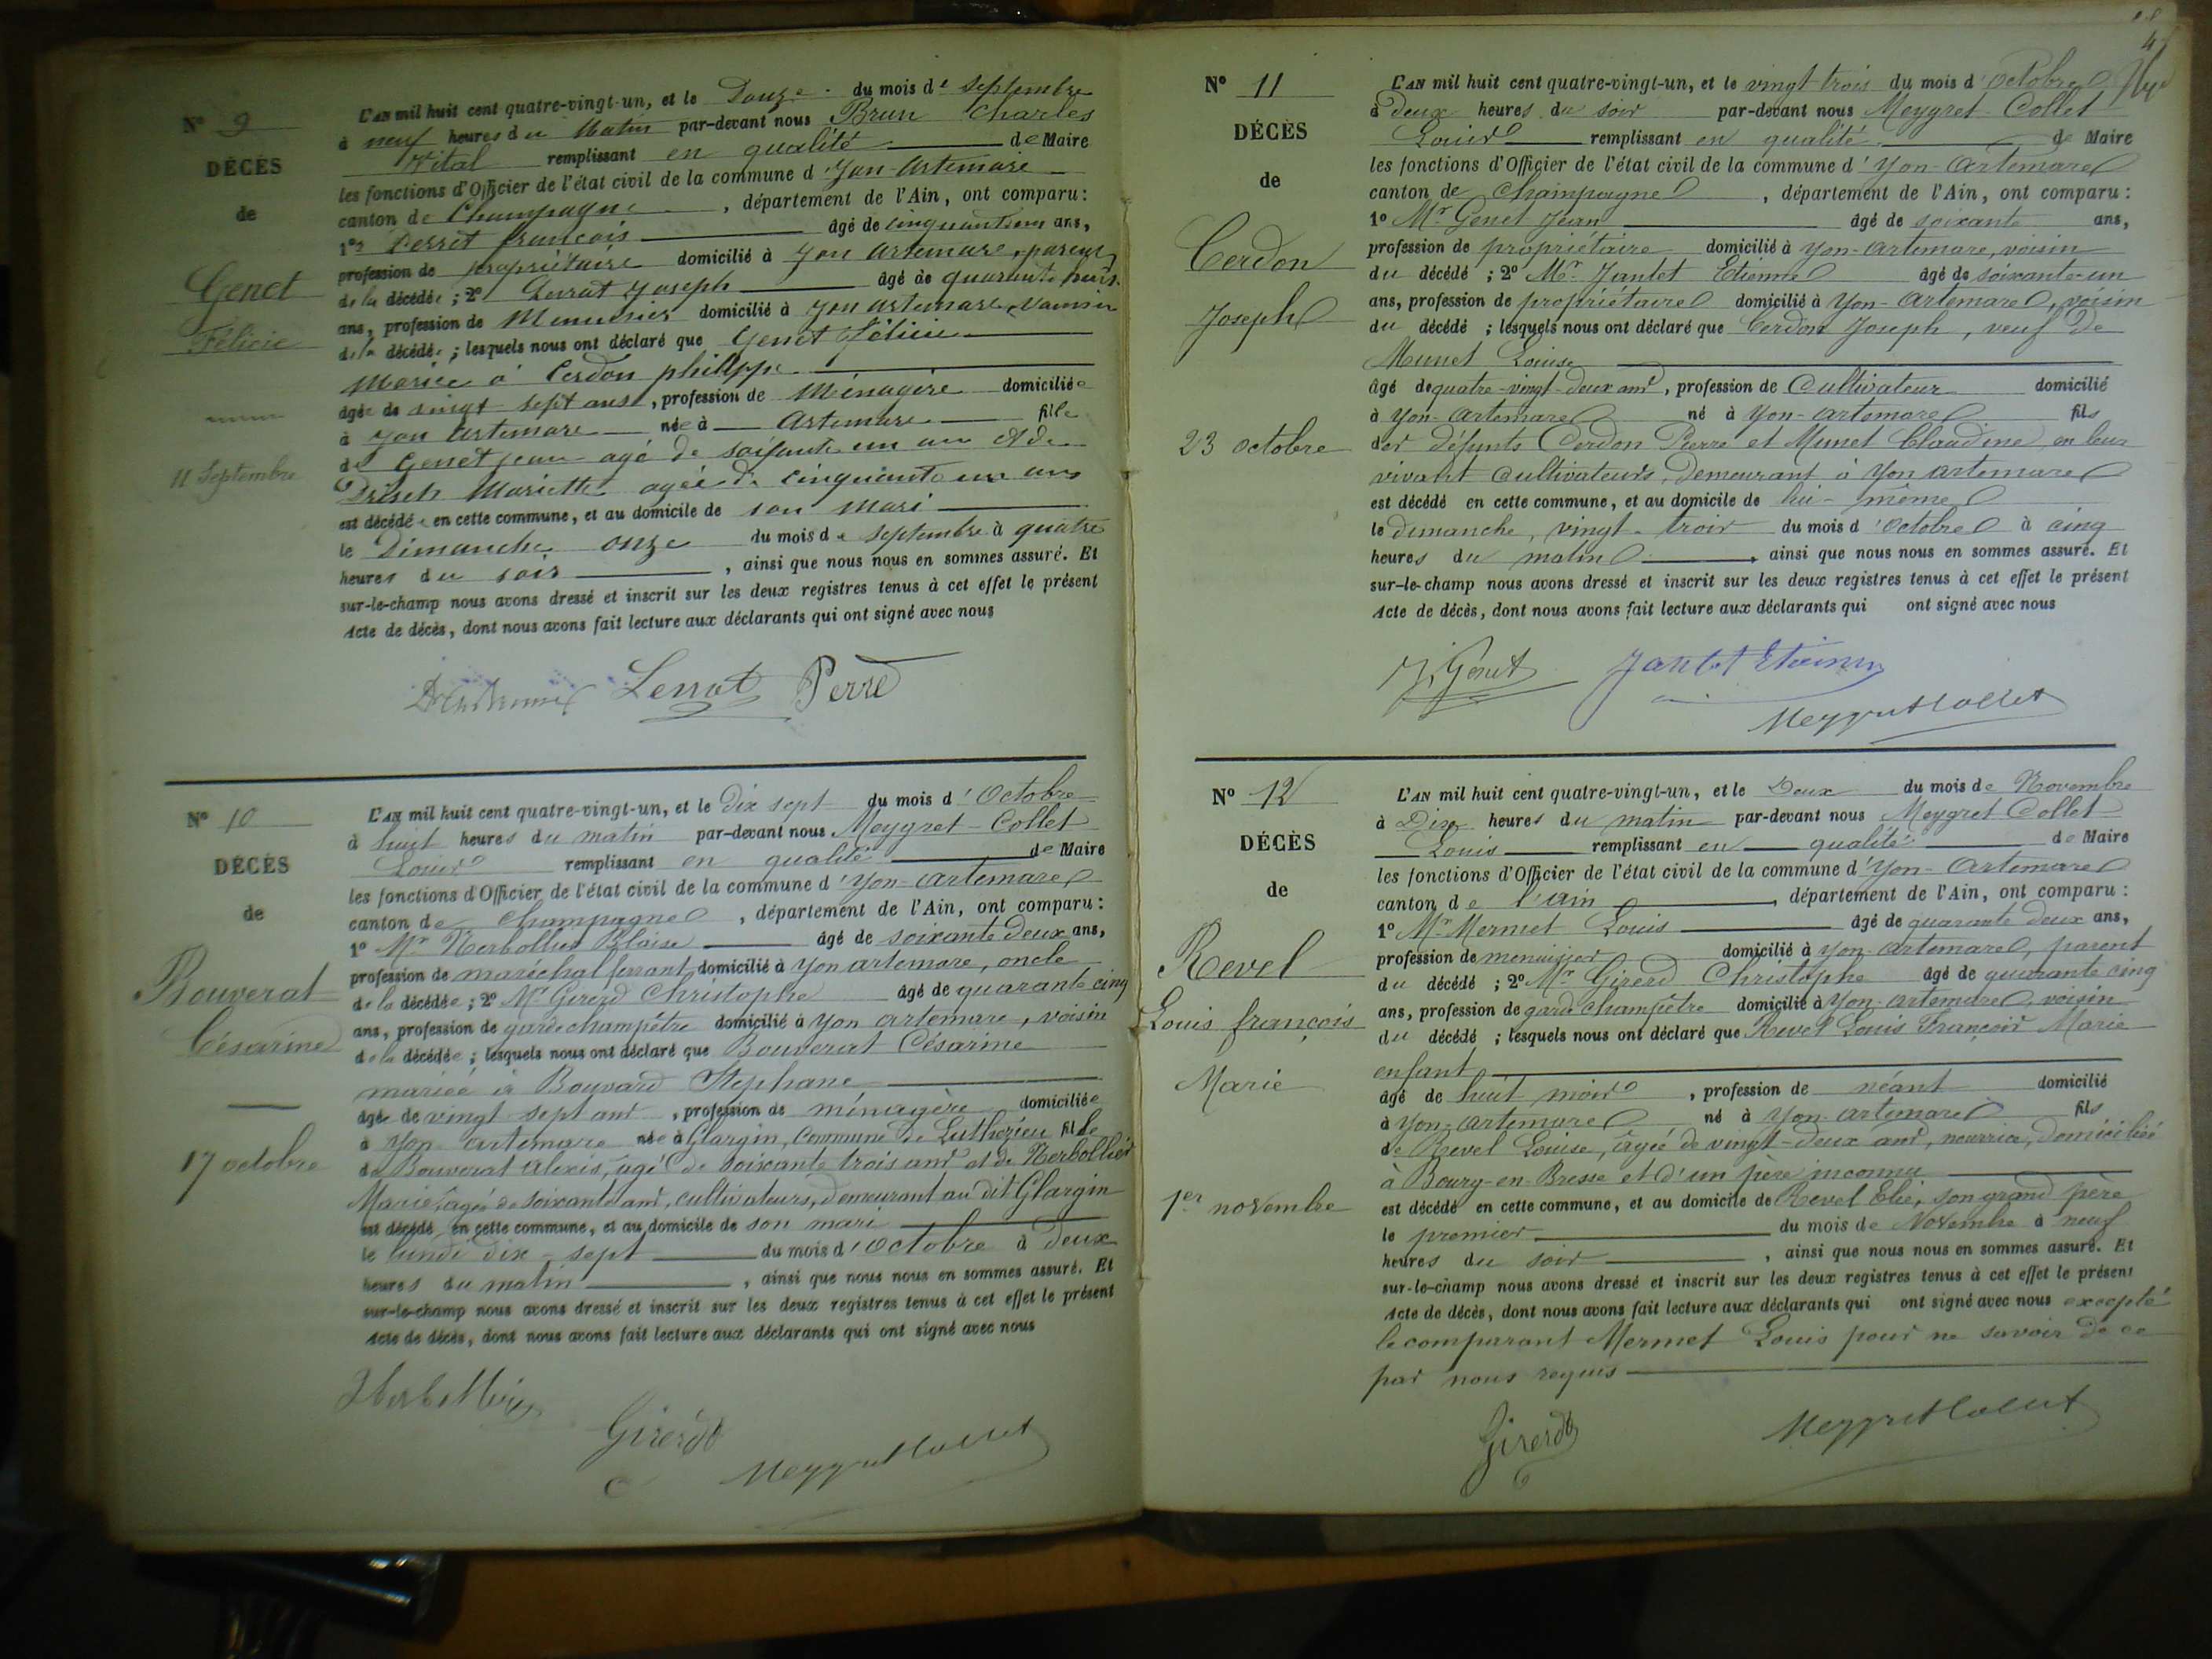 N° 9
DÉCÈS
de
Genet
Félicie
11 Septembre
L'AN mil huit cent quatre-vingt-un, et le Douze du mois de Septembre
à neuf heures du Matin par-devant nous Brun Charles
Vital remplissant en qualité de Maire
les fonctions d'Officier de l'état civil de la commune d'Yon-Artemare
canton de Champagne, département de l'Ain, ont comparu:
1° Perret françois âgé de cinquante ans,
profession de propriétaire domicilié à Yon Artemare, parent
de la décédée; 2° Serrat Joseph âgé de quarante huit
ans, profession de Menuisier domicilié à Yon Artemare, Voisin
de la décédée; lesquels nous ont déclaré que Genet Félicie
Mariée à Cerdon philippe
âgée de vingt-sept ans, profession de Ménagère domiciliée
à Yon Artemare née à Artemare fille
de Genet jean agé de soixante un an et de
Mariette agée de cinquante un ans
est décédée en cette commune, et au domicile de son Mari
le Dimanche onze du mois de Septembre à quatre
heures du soir, ainsi que nous nous en sommes assuré. Et
sur-le-champ nous avons dressé et inscrit sur les deux registres tenus à cet effet le présent
Acte de décès, dont nous avons fait lecture aux déclarants qui ont signé avec nous
Serrat Perret
N° 10
DÉCÈS
de
Bouverat
Césarine
17 octobre
L'AN mil huit cent quatre-vingt-un, et le Dix sept du mois d'Octobre
à huit heures du matin par-devant nous Meygret-Collet
Louis remplissant en qualité de Maire
les fonctions d'Officier de l'état civil de la commune d'Yon-Artemare
canton de Champagne, département de l'Ain, ont comparu:
1° Mr Herbollier Blaise âgé de soixante deux ans,
profession de maréchal ferrant domicilié à Yon artemare, oncle
de la décédée; 2° Mr Girerd Christophe âgé de quarante cinq
ans, profession de garde champêtre domicilié à Yon artemare, voisin
de la décédée; lesquels nous ont déclaré que Bouverat Césarine
mariée à Bouvard Stephane
âgée de vingt-sept ans, profession de ménagère domiciliée
à Yon-artemare née à Glargin, commune de Luthezieu fille
de Bouverat Alexis, âgé de soixante trois ans et de Herbollier
Marie, âgée de soixante ans, cultivateurs, demeurant au dit Glargin
est décédé en cette commune, et au domicile de son mari
le lundi dix-sept du mois d'Octobre à deux
heures du matin, ainsi que nous nous en sommes assuré. Et
sur-le-champ nous avons dressé et inscrit sur les deux registres tenus à cet effet le présent
Acte de décès, dont nous avons fait lecture aux déclarants qui ont signé avec nous
Herbollier
Girerd
Meygret Collet
N° 11
DÉCÈS
de
Cerdon
Joseph
23 octobre
L'AN mil huit cent quatre-vingt-un, et le vingt trois du mois d'Octobre
à deux heures du soir par-devant nous Meygret-Collet
Louis remplissant en qualité de Maire
les fonctions d'Officier de l'état civil de la commune d'Yon-Artemare
canton de Champagne, département de l'Ain, ont comparu:
1° Mr Genet Jean âgé de soixante ans,
profession de propriétaire domicilié à Yon-artemare, voisin
du décédé; 2° Mr Jantet Etienne âgé de soixante-un
ans, profession de propriétaire domicilié à Yon-Artemare, voisin
du décédé; lesquels nous ont déclaré que Cerdon Joseph, veuf de
Munet Louise
âgé de quatre-vingt-deux ans, profession de Cultivateur domicilié
à Yon-Artemare né à Yon-artemare fils
des défunts Cerdon Pierre et Munet Claudine, en leur
vivant cultivateurs, demeurant à Yon artemare
est décédé en cette commune, et au domicile de lui-même
le dimanche, vingt-trois du mois d'Octobre à cinq
heures du matin, ainsi que nous nous en sommes assuré. Et
sur-le-champ nous avons dressé et inscrit sur les deux registres tenus à cet effet le présent
Acte de décès, dont nous avons fait lecture aux déclarants qui ont signé avec nous
J. Genet Jantet Etienne
Meygret Collet
N° 12
DÉCÈS
de
Revel
Louis françois
Marie
1er novembre
L'AN mil huit cent quatre-vingt-un, et le Deux du mois de Novembre
à Dix heures du matin par-devant nous Meygret Collet
Louis remplissant en qualité de Maire
les fonctions d'Officier de l'état civil de la commune d'Yon-Artemare
canton de l'Ain, département de l'Ain, ont comparu:
1° Mr Mermet Louis âgé de quarante deux ans,
profession de menuisier domicilié à Yon-artemare, parent
du décédé; 2° Mr Girerd Christophe âgé de quarante cinq
ans, profession de garde champêtre domicilié à Yon-artemare, voisin
du décédé; lesquels nous ont déclaré que Revel Louis François Marie
enfant
âgé de huit mois, profession de néant domicilié
à Yon-artemare né à Yon-artemare fils
de Revel Louise, âgée de vingt-deux ans, nourrice, domiciliée
à Bourg-en-Bresse et d'un père inconnu
est décédé en cette commune, et au domicile de Revel Elie, son grand père
le premier du mois de Novembre à neuf
heures du soir, ainsi que nous nous en sommes assuré. Et
sur-le-champ nous avons dressé et inscrit sur les deux registres tenus à cet effet le présent
Acte de décès, dont nous avons fait lecture aux déclarants qui ont signé avec nous excepté
le comparant Mermet Louis pour ne savoir de ce
par nous requis
Girerd
Meygret Collet